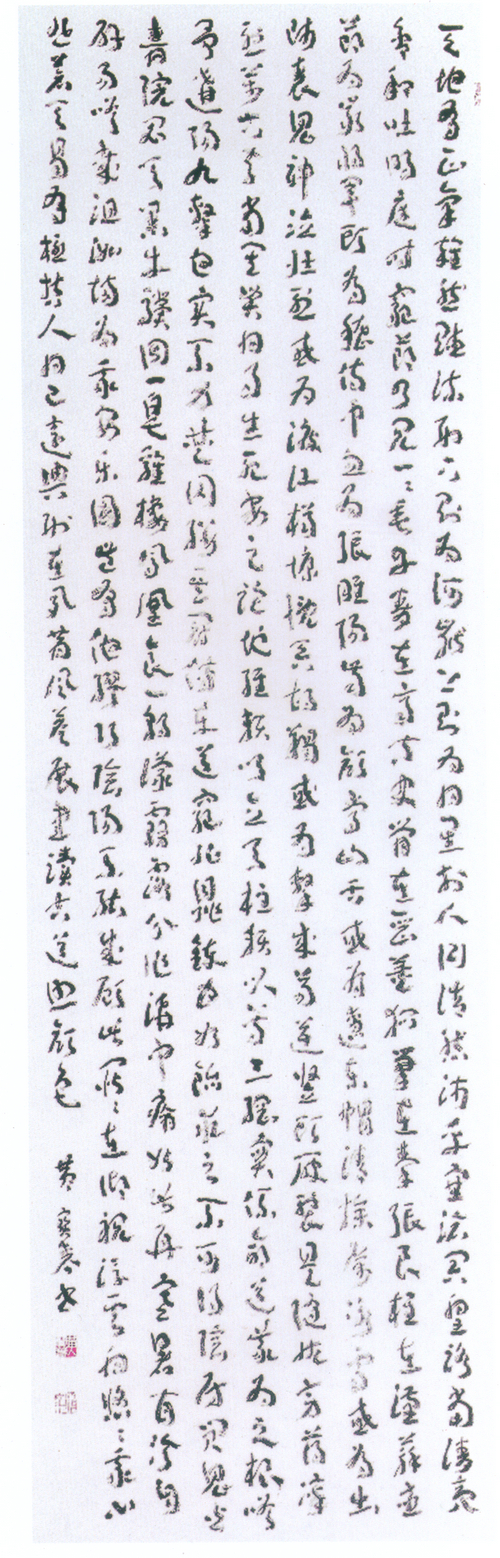 天地有正氣雜然賦流形下則為河嶽上則為日星於人曰浩然沛乎塞滄冥皇路當清夷
含和吐明庭時窮節乃見一一垂丹青在齊太史簡在晉董狐筆在秦張良椎在漢蘇武
節為嚴將軍頭為嵇侍中血為張睢陽齒為顏常山舌或為遼東帽清操厲冰雪或為出
師表鬼神泣壯烈或為渡江楫慷慨吞胡羯或為擊賊笏逆豎頭破裂是氣所旁薄凜
烈萬古存當其貫日月生死安足論地維賴以立天柱賴以尊三綱實係命道義為之根嗟
予遘陽九隸也實不力楚囚纓其冠傳車送窮北鼎鑊甘如飴求之不可得陰房闃鬼火
春院閟天黑牛驥同一皂雞棲鳳凰食一朝濛霧露分作溝中瘠如此再寒暑百沴自
辟易嗟哉沮洳場為我安樂國豈有他繆巧陰陽不能賊顧此耿耿在仰視浮雲白悠悠我心
悲蒼天曷有極哲人日已遠典刑在夙昔風簷展書讀古道照顏色 黃寶書